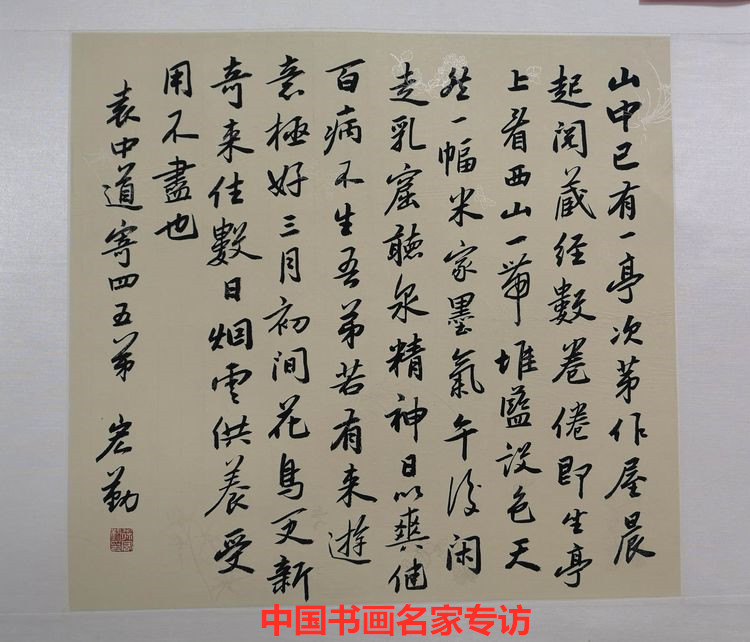 山中已有一亭次第作屋晨
起阅藏经數卷倦即坐亭
上看西山一带堆蓝设色天
然一幅米家墨氣午後闲
走乳窟聽泉精神日以爽健
百病不生吾弟若有来遊
意極好三月初间花鸟更新
奇来住數日烟雲供養受
用不盡也
袁中道寄四五弟 宏勤
中国书画名家专访